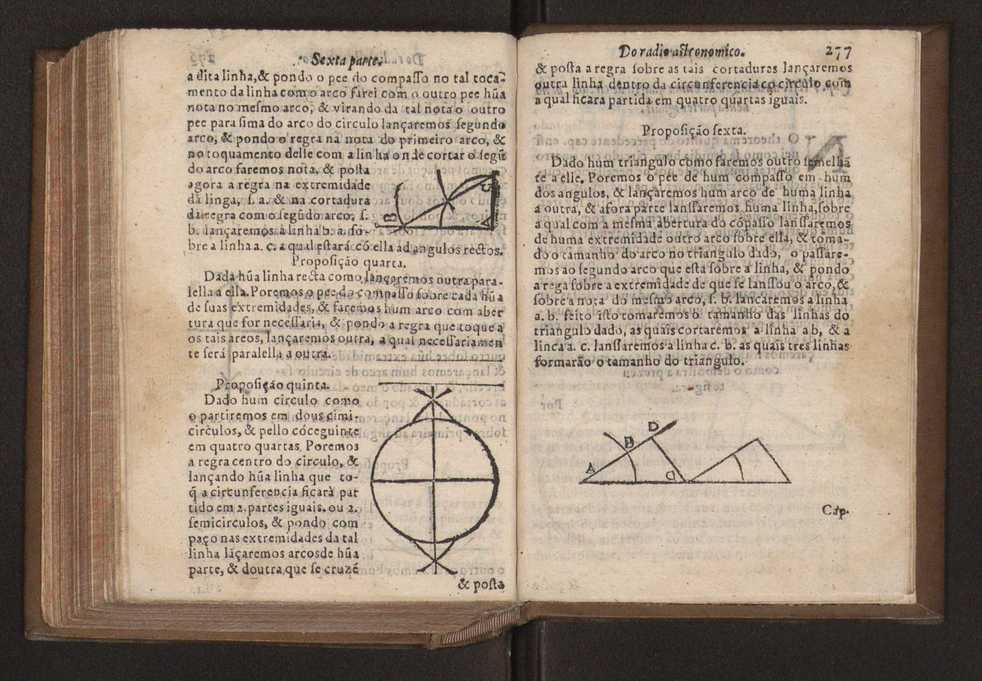 Sexta parte.
a dita linha, & pondo o pee do compaſſo no tal toca-
mento da linha com o arco farei com o outro pee hũa
nota no meſmo arco, & virando da tal nota o outro
pee para ſima do arco do circulo lançaremos ſegundo
arco, & pondo o regra na nota do primeiro arco, &
no toquamento delle com a linha onde cortar o ſegũ
do arco faremos nota, & poſta
agora a regra na extremidade
da linga, ſ. a. & na cortadura
da regra com o ſegũdo arco, ſ.
b. lançaremos a linha b. a. ſo-
bre a linha a. c. a qual eſtará cõ ella ad angulos rectos.
B
C
A
Propoſição quarta.
Dada hũa linha recta como lançaremos outra para-
lella a ella. Poremos o pee do compaſſo ſobre cada hũa
de ſuas extremidades, & faremos hum arco com aber
tura que for neceſſaria, & pondo a regra que toque a
os tais arcos, lançaremos outra, a qual neceſſariamen
te ſerá paralella a outra.
Propoſição quinta.
Dado hum circulo como
o partiremos em dous ſimi-
circulos, & pello cõceguinte
em quatro quartas. Poremos
a regra centro do circulo, &
lançando hũa linha que to-
q̃ a circunferencia ficará par
tido em 2. partes iguais. ou 2.
ſemicirculos, & pondo com
paço nas extremidades da tal
linha lãçaremos arcos de hũa
parte, & doutra que ſe cruzẽ
& poſta
Do radio aſtronomico. 277
& poſta a regra ſobre as tais cortaduras lançaremos
outra linha dentro da circunferencia co circulo com
a qual ficara partida em quatro quartas iguais.
Propoſição ſexta.
Dado hum triangulo como faremos outro ſemelhã
te a elle. Poremos o pee de hum compaſſo em hum
dos angulos, & lançaremos hum arco de huma linha
a outra, & afora parte lanſſaremos huma linha, ſobre
a qual com a meſma abertura do cõpaſſo lanſſaremos
de huma extremidade outro arco ſobre ella, & toma-
do o tamanho do arco no triangulo dado, o paſſare-
mos ao ſegundo arco que eſta ſobre a linha, & pondo
a rega ſobre a extremidade de que ſe lanſſou o arco, &
ſobre a nota do meſmo arco, ſ. b. lancaremos a linha
a. b. feito iſto tomaremos o tamanho das linhas do
triangulo dado, as quais cortaremos a linha a b, & a
linea a. c. lanſſaremos a linha c. b. as quais tres linhas
formarão o tamanho do triangulo.
A
B
D
C
Cap.